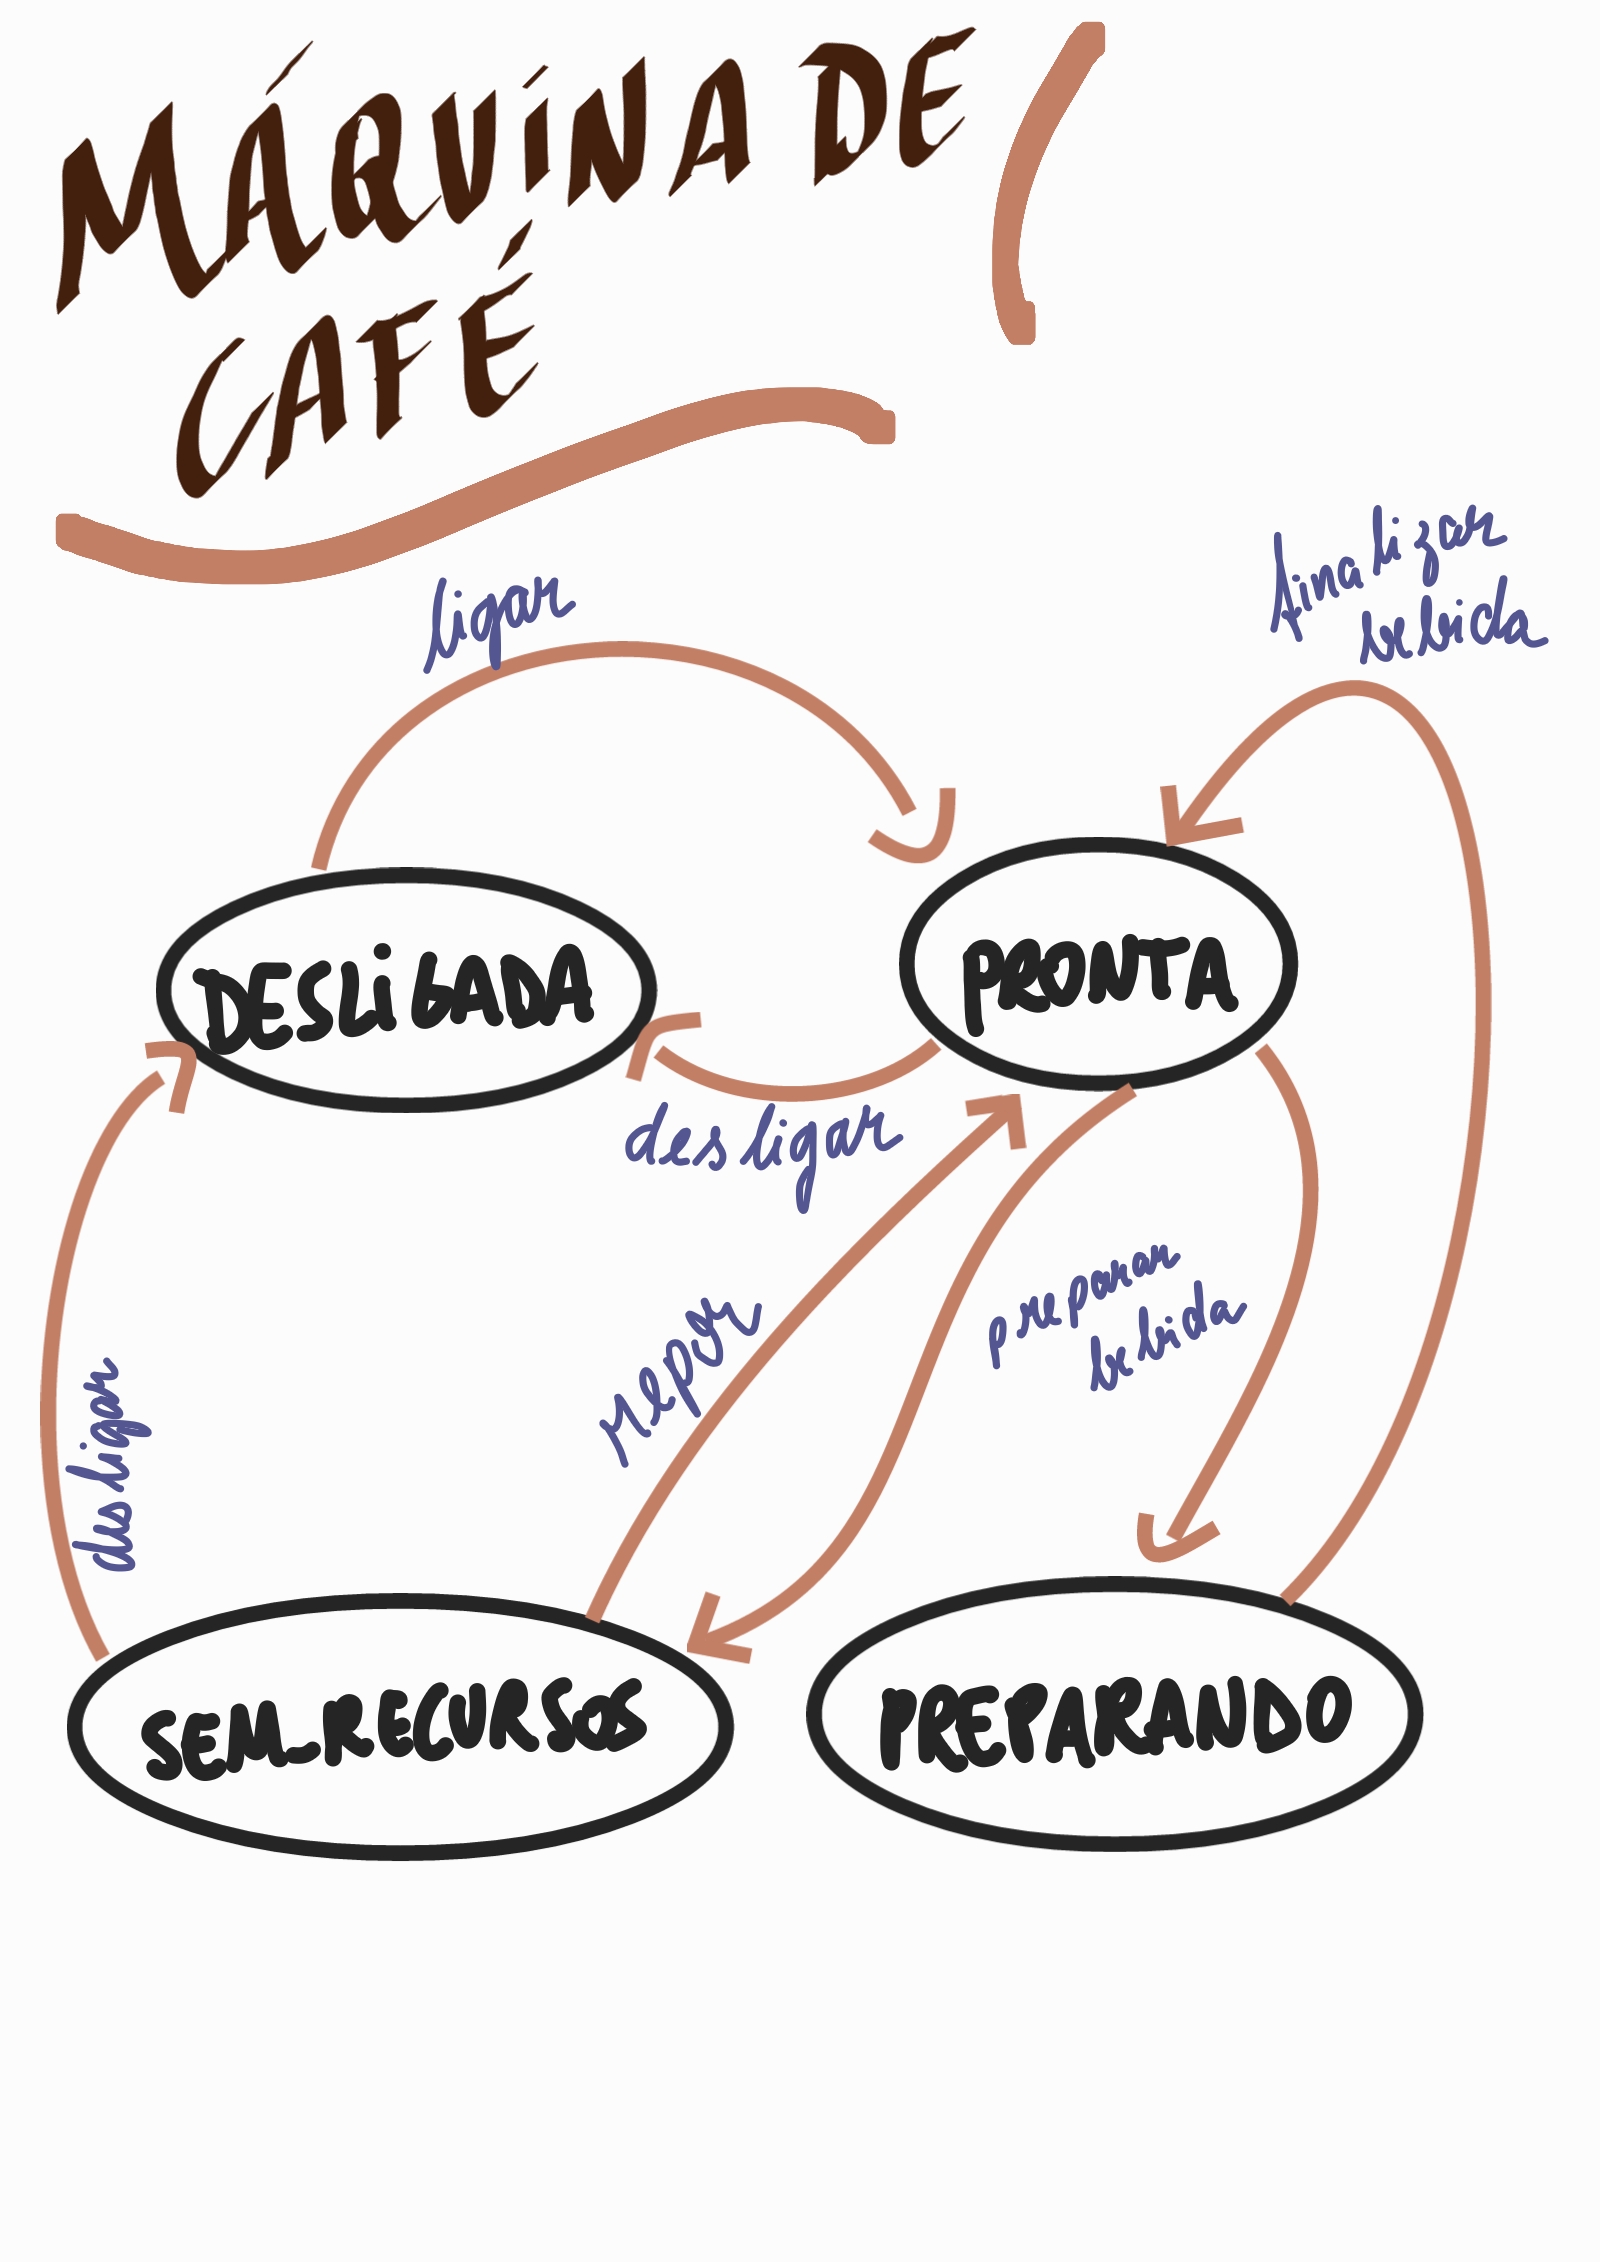 MÁQUINA DE
CAFÉ
ligar
finalizar
bebida
DESLIGADA
PRONTA
desligar
preparar
bebida
repor
desligar
SEM_RECURSOS
PREPARANDO